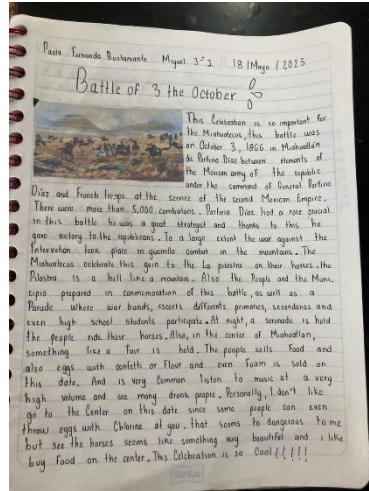 Paola Fernanda Bustamante Miguel 3° 1 18/Mayo/2023
Battle of 3 the October
This Celebration is so important for
the Miahuatecos, this battle was
on October 3, 1866 in Miahuatlán
de Porfirio Díaz between elements of
the Mexican army of the republic
under the command of General Porfirio
Díaz and French troops at the service of the second Mexican Empire.
There were more than 5,000 combatans. Porfirio Díaz had a role crucial
in this battle he was a great strategist and thanks to this he
gave victory to the republicans. To a large extent the war against the
Intervention took place in guerrilla combat in the mountains. The
Miahuatecos celebrate this gain to the La pilastra on their horses. the
Pilastra is a hill like a mountain. Also The People and the Muni-
cipio prepared in commemoration of this battle, as well as a
Parade where war bands, escorts different primaries, secondaries and
even high school students participate. At night, a serenade is held
the people ride their horses. Also, in the center of Miahuatlan,
something like a fair is held. The people sells Food and
also eggs with confetti or Flour and even Foam is sold on
this date. And is very Common listen to music at a very
high volume and see many drunk people. Personally, I don't like
go to the Center on this date since some people can even
throw eggs with Chlorine at you. that seems to dangerous to me
but see the horses seems like something very beautiful and i like
buy food on the center. This Celebration is so Cool!!!!!
Scribe